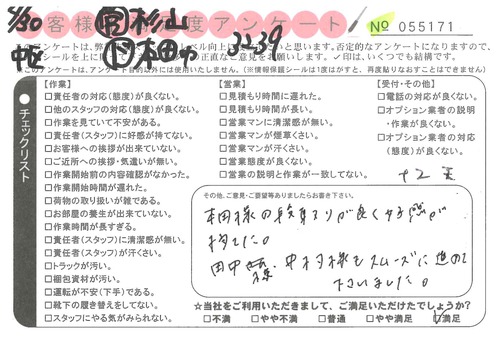 5/30 お客様満足度アンケート № 055171
㊞ 杉山
中区 本田 32-39
※このアンケートは、アンケート目的以外には使用いたしません。(※情報保護シールは1度はがすと、再度貼りなおすことはできません)
チェックリスト
【作業】
□責任者の対応(態度)が良くない。
□他のスタッフの対応(態度)が良くない。
□作業を見ていて不安がある。
□責任者(スタッフ)に好感が持てない。
□お客様への挨拶が出来ていない。
□ご近所への挨拶・気遣いが無い。
□作業開始前の内容確認がなかった。
□作業開始時間が遅れた。
□荷物の取り扱いが雑である。
□お部屋の養生が出来ていない。
□作業時間が長すぎる。
□責任者(スタッフ)に清潔感が無い。
□責任者(スタッフ)が汗くさい。
□トラックが汚い。
□梱包資材が汚い。
□運転が不安(下手)である。
□靴下の履き替えをしてない。
□スタッフにやる気がみられない。
【営業】
□見積もり時間に遅れた。
□見積もり時間が長い。
□営業マンに清潔感が無い。
□営業マンが煙草くさい。
□営業マンが汗くさい。
□営業態度が良くない。
□営業の説明と作業が一致してない。
【受付・その他】
□電話の対応が良くない。
□オプション業者の説明
・作業が良くない。
□オプション業者の対応
(態度)が良くない。
その他、ご意見・ご要望等ありましたらお書き下さい。
本田様の段取りが良く好感が
持てました。
田中様、中村様もスムーズに進めて
下さいました。
☆当社をご利用いただきまして、ご満足いただけたでしょうか?
□不満 □やや不満 □普通 □やや満足 ☑満足